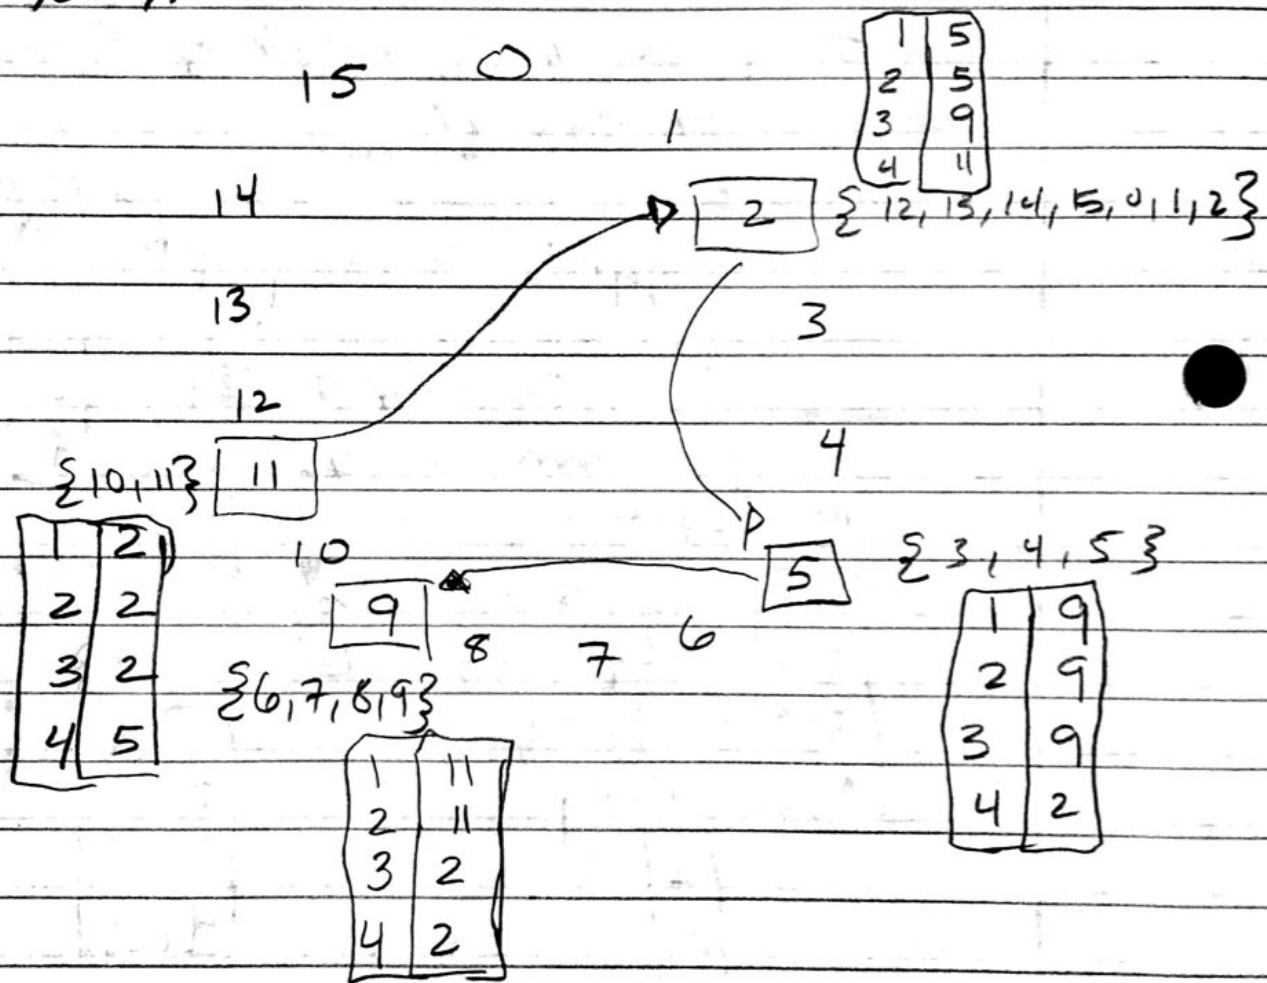 15
0
1 5
2 5
3 9
4 11
1
14
2 { 12, 13, 14, 15, 0, 1, 2 }
13
3
12
4
{10, 11} 11
1 2
2 2
3 2
4 5
10
5 { 3, 4, 5 }
9
8 7 6
{6, 7, 8, 9}
1 9
2 9
3 9
4 2
1 11
2 11
3 2
4 2